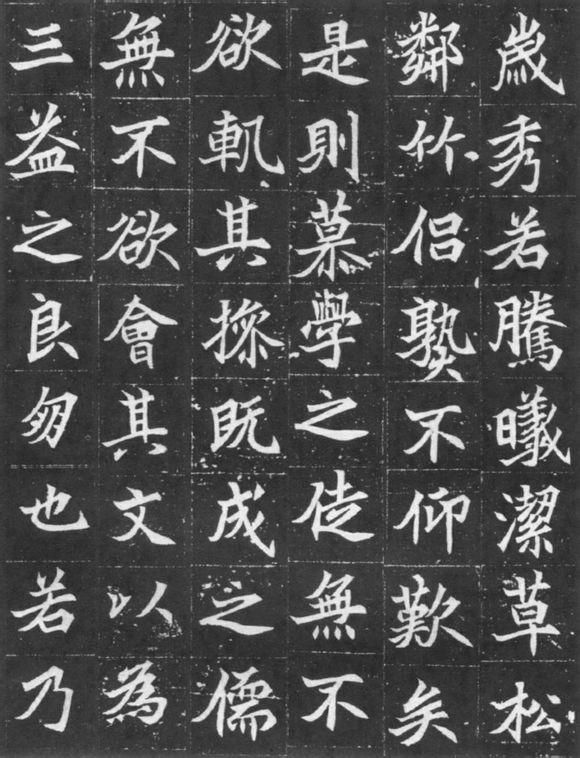 歲秀若騰曦潔草松
鄰竹侣熟不仰歎矣
是則慕學之徒無不
欲軌其操既成之儒
無不欲會其文以為
三益之良朋也若乃